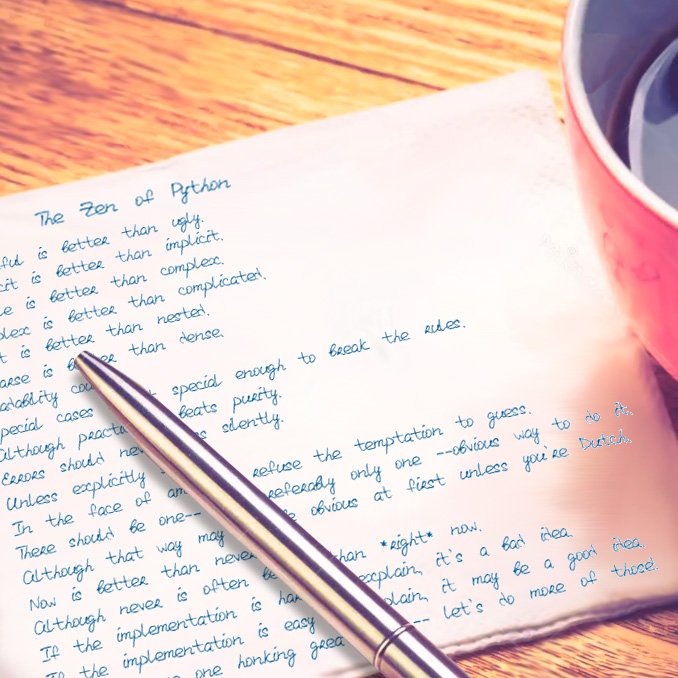 The Zen of Python
ful is better than ugly.
cit is better than implicit.
le is better than complex.
plex is better than complicated.
t is better than nested.
arse is b er than dense.
adability cou
pecial cases special enough to break the rules.
Although practi beats purity.
Errors should nev s silently.
Unless explicitly s
In the face of am refuse the temptation to guess.
There should be one-- referably only one --obvious way to do it.
Although that way may e obvious at first unless you're Dutch.
Now is better than never
Although never is often be than *right* now.
If the implementation is har explain, it's a bad idea.
If the implementation is easy plain, it may be a good idea.
one honking grea -- let's do more of those!